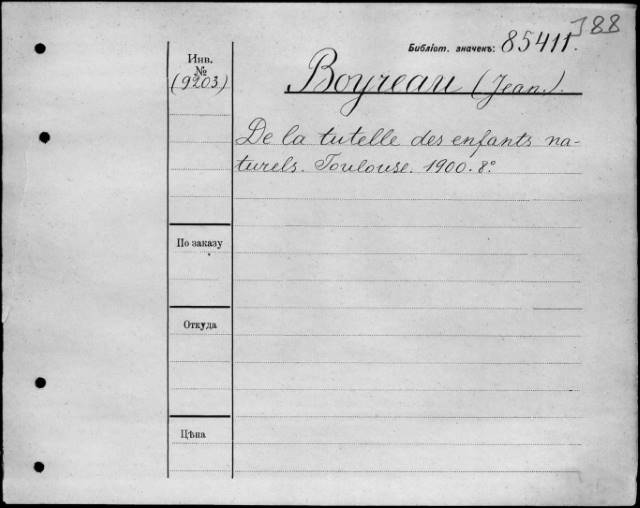 J88
Библіот. значекъ: 85411.
Инв.
№
(9203)
Boyreau (Jean.).
De la tutelle des enfants na-
turels. Toulouse. 1900. 8°
По заказу
Откуда
Цѣна